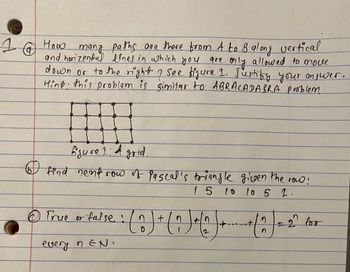 1 (a) How many paths are there from A to B along vertical
and horizontal lines in which you are only allowed to move
down or to the right ? See figure 1. Justify your answer.
Hint: this problem is similar to ABRACADABRA problem
figure 1: A grid.
(b) find next row of Pascal's triangle given the row:
1 5 10 10 5 1.
(c) True or false : (n 0) + (n 1) + (n 2) + ...... + (n n) = 2^n for
every n ∈ N.